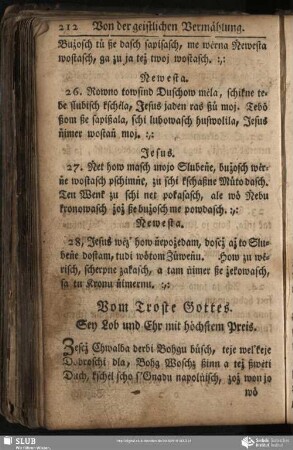 212 Von der geistlichen Vermählung.
Bužosch tü ße dasch sapisasch, me werna Newesta
wostasch, ga zu ja tež twoj wostasch. :,:
Newesta.
26. Rowno towsind Duschow mėla, schikne te-
be slubisch kschėla, Jesus jaden ras ßü moj. Tebö
ßom ße sapißala, schi lubowasch huswolila, Jesus
ṅimer wostaṅ moj. :,:
Jesus.
27. Net how masch mojo Slubeṅe, bužosch wėr-
ṅe wostasch pschimṅe, zu schi kschaßne Mütodasch.
Ten Wenk zu schi net pokasasch, ale wö Nebu
kronowasch žož ße bužosch me powdasch. :,:
Newesta.
28, Jesus wėž' how ṅepožedam, dosež až to Slu-
beṅe dostam, tudi wötom Zuweṅu. How zu wė-
risch, scherpne zakasch, a tam ṅimer ße žekowasch,
sa tu Kronu ṅimernu. :,:
Vom Troste Gottes.
Sey Lob und Ehr mit höchstem Preis.
Zesež Chwalba derbi Bohgu büsch, teje wel'keje
Dobroschi dla, Bohg Woschž ßinn a tež ßwėti
Duch, kschėl scho s'Gnadu napolṅisch, žož won jo
wö
SLUB
Wir führen Wissen.